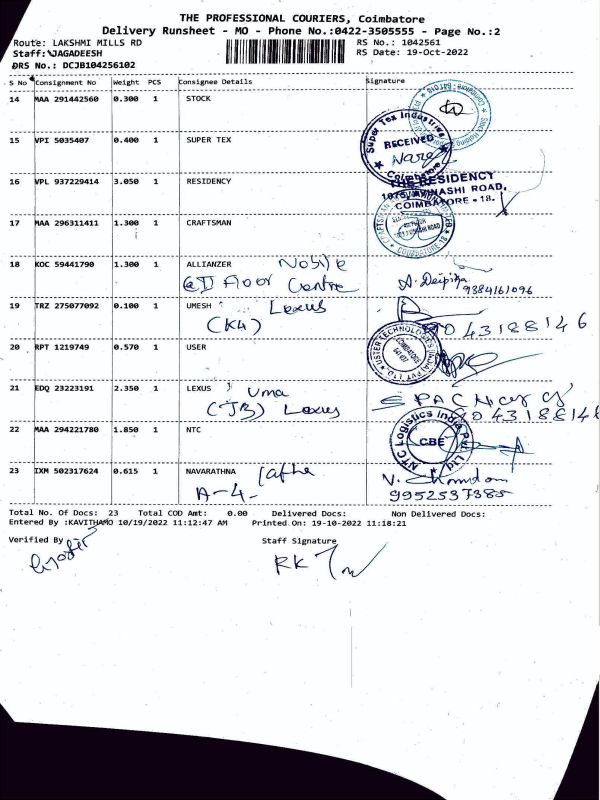 THE PROFESSIONAL COURIERS, Coimbatore
Delivery Runsheet - MO - Phone No.:0422-3505555 - Page No.:2
Route: LAKSHMI MILLS RD RS No.: 1042561
Staff: JAGADEESH RS Date: 19-Oct-2022
DRS No.: DCJB104256102
S No Consignment No Weight PCS Consignee Details Signature
14 MAA 291442560 0.300 1 STOCK
15 VPI 5035407 0.400 1 SUPER TEX
Super Tex Industries
RECEIVED
Coimbatore
16 VPL 937229414 3.050 1 RESIDENCY
THE RESIDENCY
1076, AVINASHI ROAD,
COIMBATORE - 18.
17 MAA 296311411 1.300 1 CRAFTSMAN
COIMBATORE-18
18 KOC 59441790 1.300 1 ALLIANZER
Floor Centre
9384161096
19 TRZ 275077092 0.100 1 UMESH Lexus
(K4)
9043188146
20 RPT 1219749 0.570 1 USER
USTER TECHNOLOGIES (INDIA) PVT LTD
COIMBATORE
641 037
21 EDQ 23223191 2.350 1 LEXUS Uma
(JB) Lexus
9043188146
22 MAA 294221780 1.850 1 NTC
NTC Logistics India Pvt Ltd
CBE
23 IXM 502317624 0.615 1 NAVARATHNA
A-4-
9952537385
Total No. Of Docs: 23 Total COD Amt: 0.00 Delivered Docs: Non Delivered Docs:
Entered By :KAVITHAMO 10/19/2022 11:12:47 AM Printed On: 19-10-2022 11:18:21
Verified By Staff Signature
RK